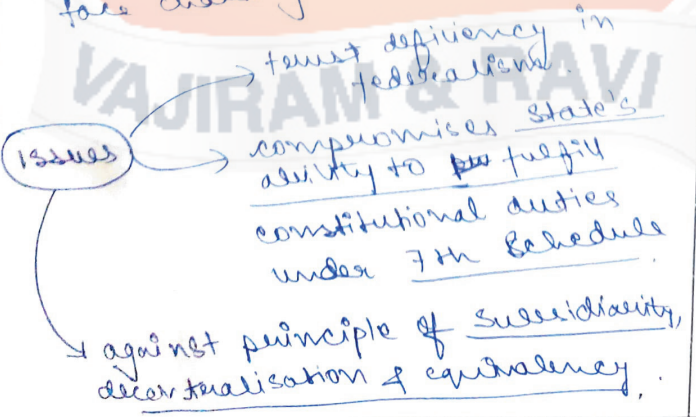 face
VAJIRAM & RAVI
issues
trust deficiency in
federalism.
compromises state's
ability to fulfill
constitutional duties
under 7th Schedule
against principle of subsidiarity,
decentralisation & equivalency.